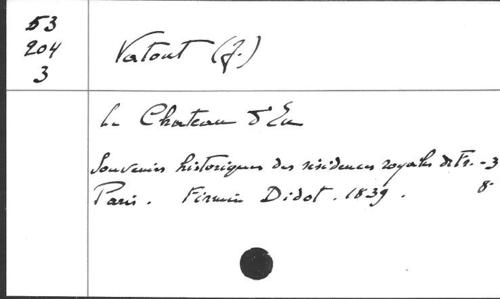 53
204
3
Vatout (J.)
Le Chateau d'Eu
Souvenirs historiques des résidences royales de Fr. - 3
Paris. Firmin Didot. 1839. 8°